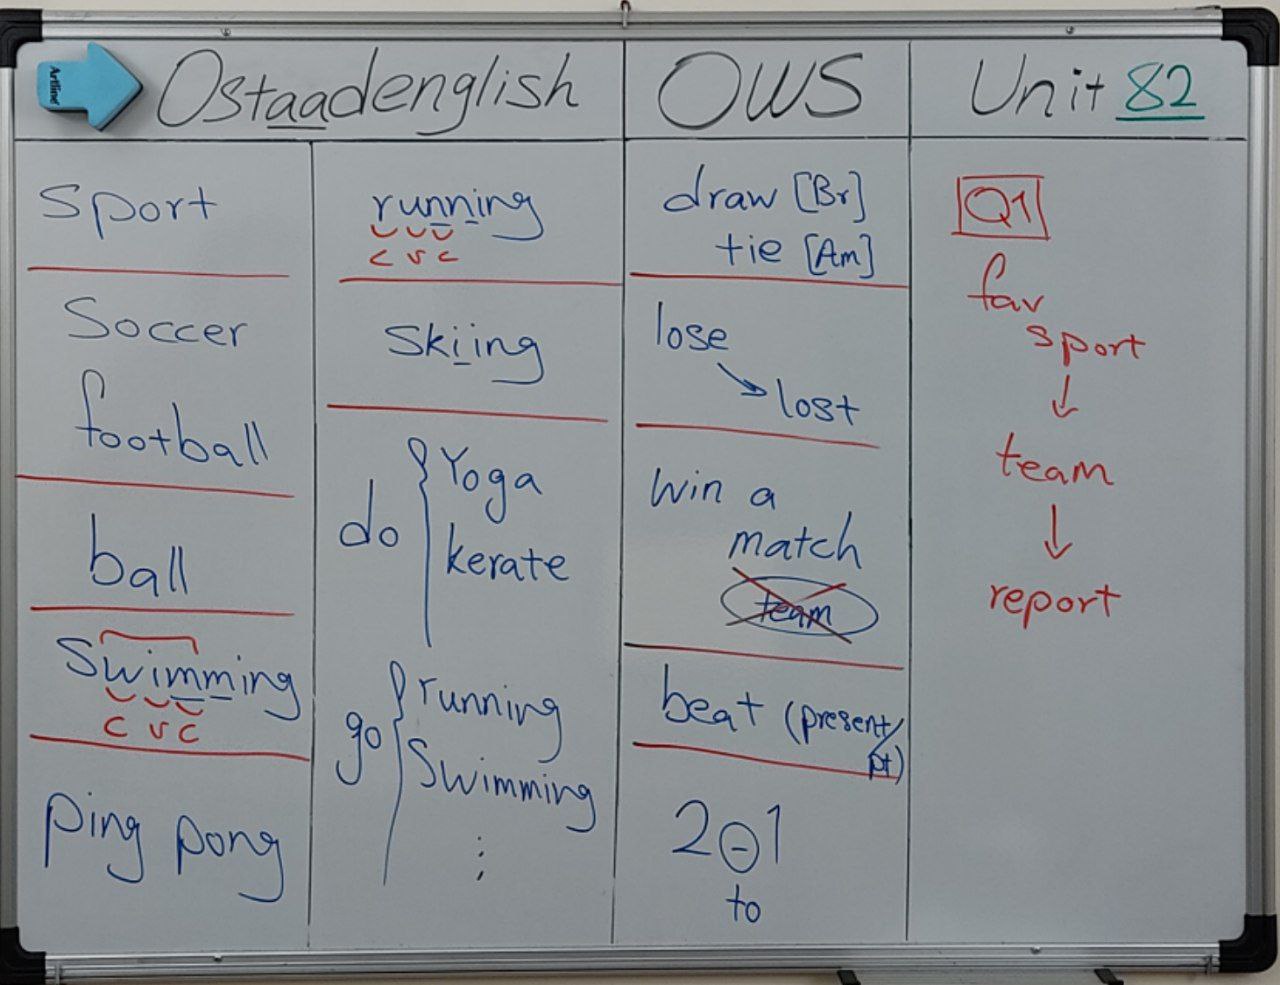 Artline
Ostaadenglish
OWS
Unit 82
sport
Soccer
football
ball
Swimming
c v c
ping pong
running
c v c
skiing
do
Yoga
kerate
go
running
Swimming
:
draw [Br]
tie [Am]
lose
lost
win a
match
team
beat (present/
pt)
2-1
to
Q1
fav
sport
↓
team
↓
report